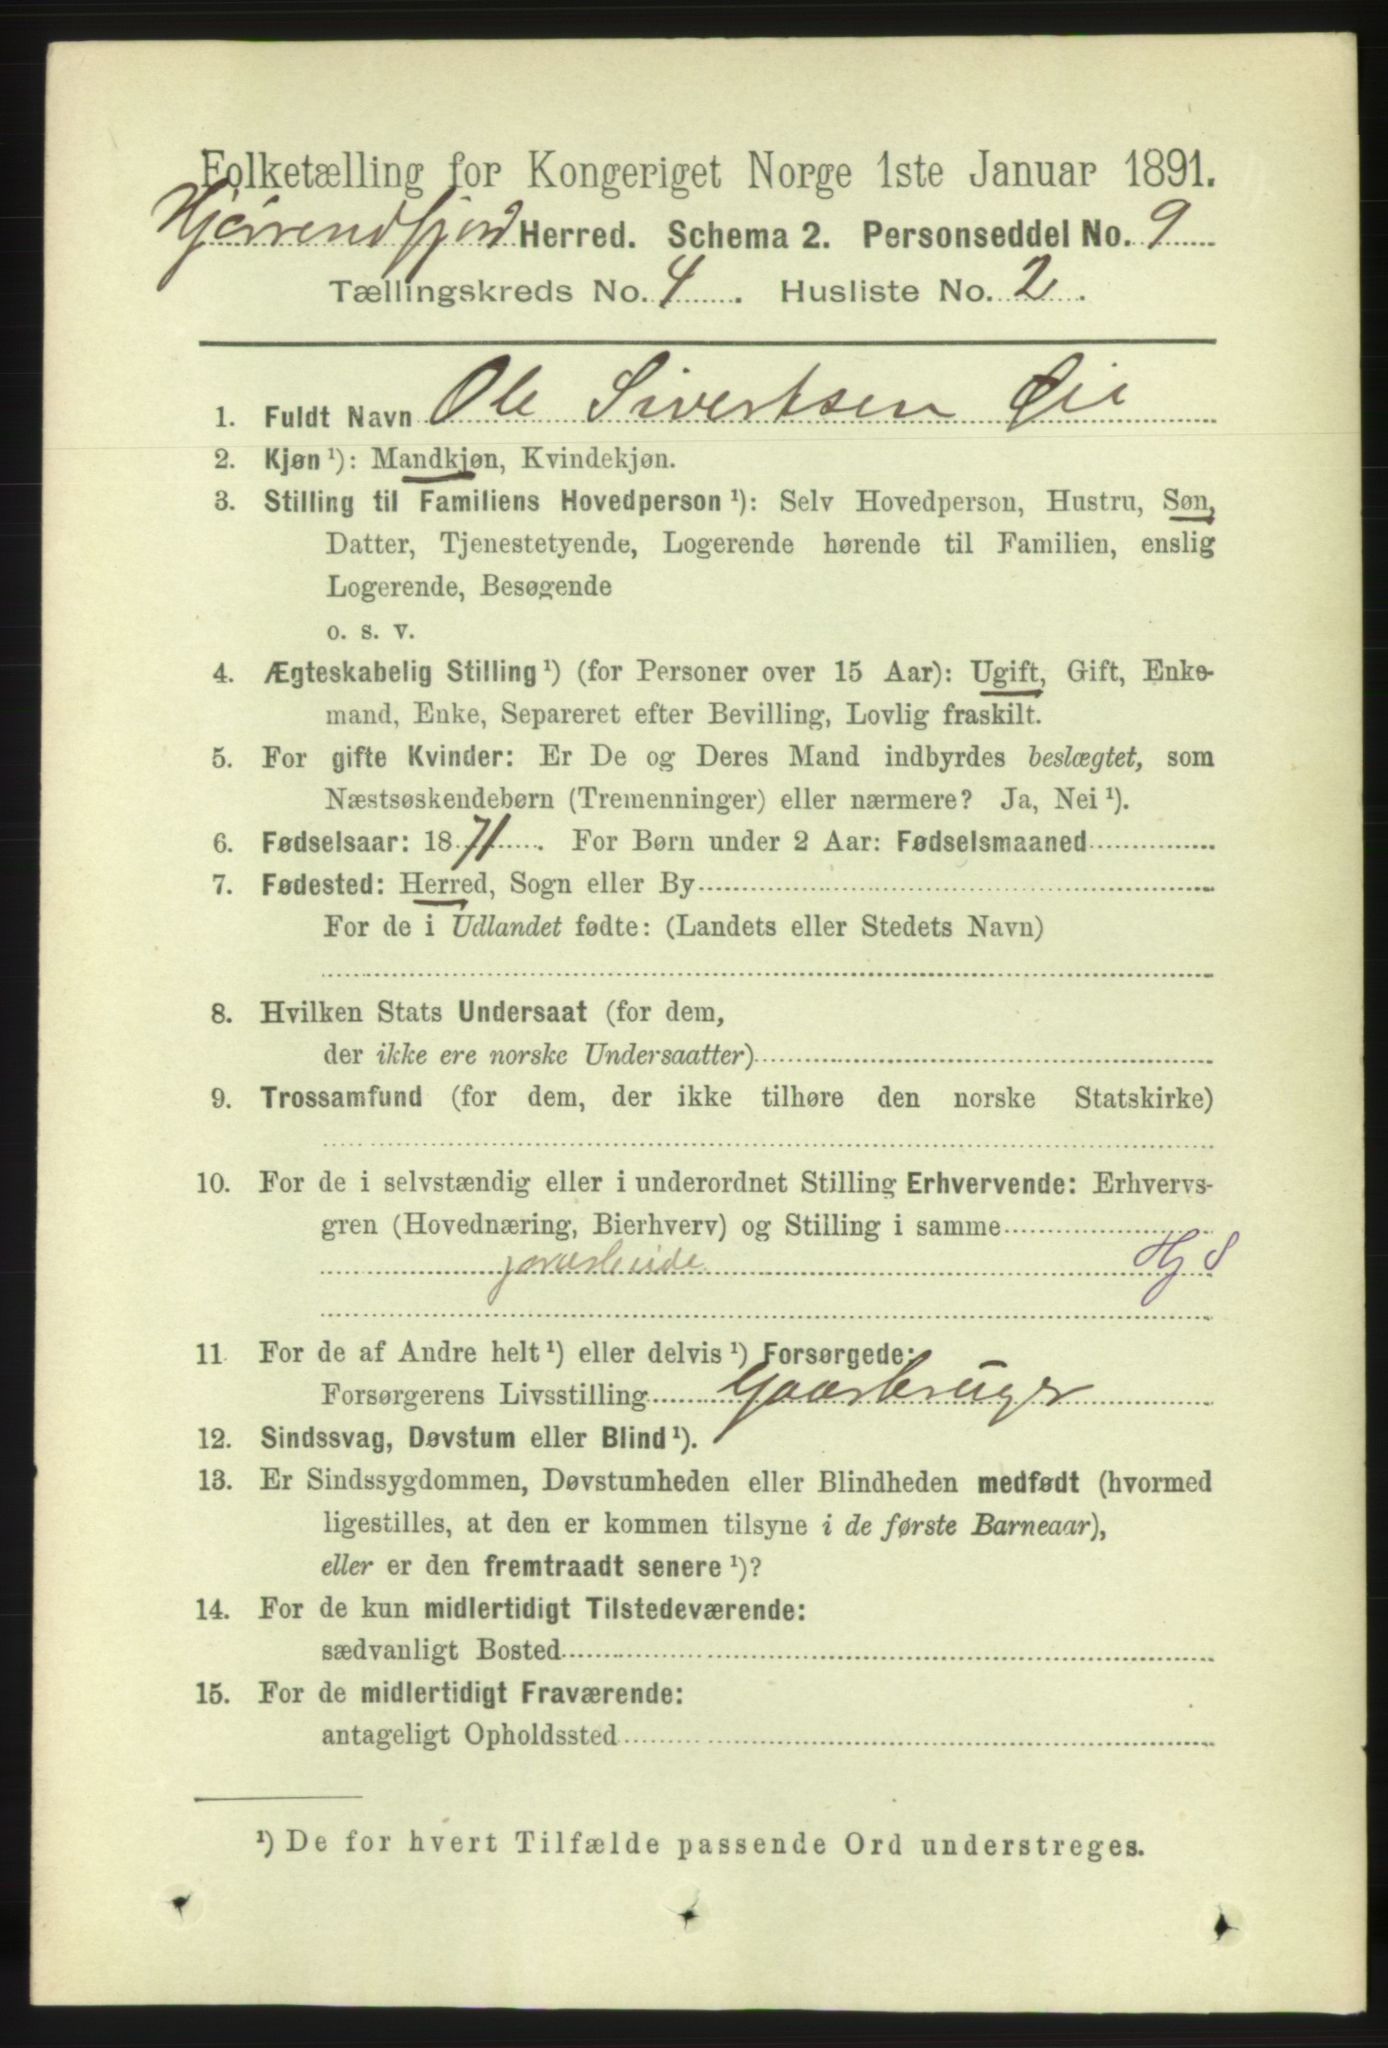 Folketælling for Kongeriget Norge 1ste Januar 1891.
Hjørendfjord Herred. Schema 2. Personseddel No. 9
Tællingskreds No. 4. Husliste No. 2.
1. Fuldt Navn Ole Sivertsen Øie
2. Kjøn ¹): Mandkjøn, Kvindekjøn.
3. Stilling til Familiens Hovedperson ¹): Selv Hovedperson, Hustru, Søn,
Datter, Tjenestetyende, Logerende hørende til Familien, enslig
Logerende, Besøgende
o. s. v.
4. Ægteskabelig Stilling ¹) (for Personer over 15 Aar): Ugift, Gift, Enke-
mand, Enke, Separeret efter Bevilling, Lovlig fraskilt.
5. For gifte Kvinder: Er De og Deres Mand indbyrdes beslægtet, som
Næstsøskendebørn (Tremenninger) eller nærmere? Ja, Nei ¹).
6. Fødselsaar: 1871. For Børn under 2 Aar: Fødselsmaaned
7. Fødested: Herred, Sogn eller By
For de i Udlandet fødte: (Landets eller Stedets Navn)
8. Hvilken Stats Undersaat (for dem,
der ikke ere norske Undersaatter)
9. Trossamfund (for dem, der ikke tilhøre den norske Statskirke)
10. For de i selvstændig eller i underordnet Stilling Erhvervende: Erhvervs-
gren (Hovednæring, Bierhverv) og Stilling i samme
Hj 8
11 For de af Andre helt ¹) eller delvis ¹) Forsørgede:
Forsørgerens Livsstilling Gaarbruger
12. Sindssvag, Døvstum eller Blind ¹).
13. Er Sindssygdommen, Døvstumheden eller Blindheden medfødt (hvormed
ligestilles, at den er kommen tilsyne i de første Barneaar),
eller er den fremtraadt senere ¹)?
14. For de kun midlertidigt Tilstedeværende:
sædvanligt Bosted
15. For de midlertidigt Fraværende:
antageligt Opholdssted
¹) De for hvert Tilfælde passende Ord understreges.